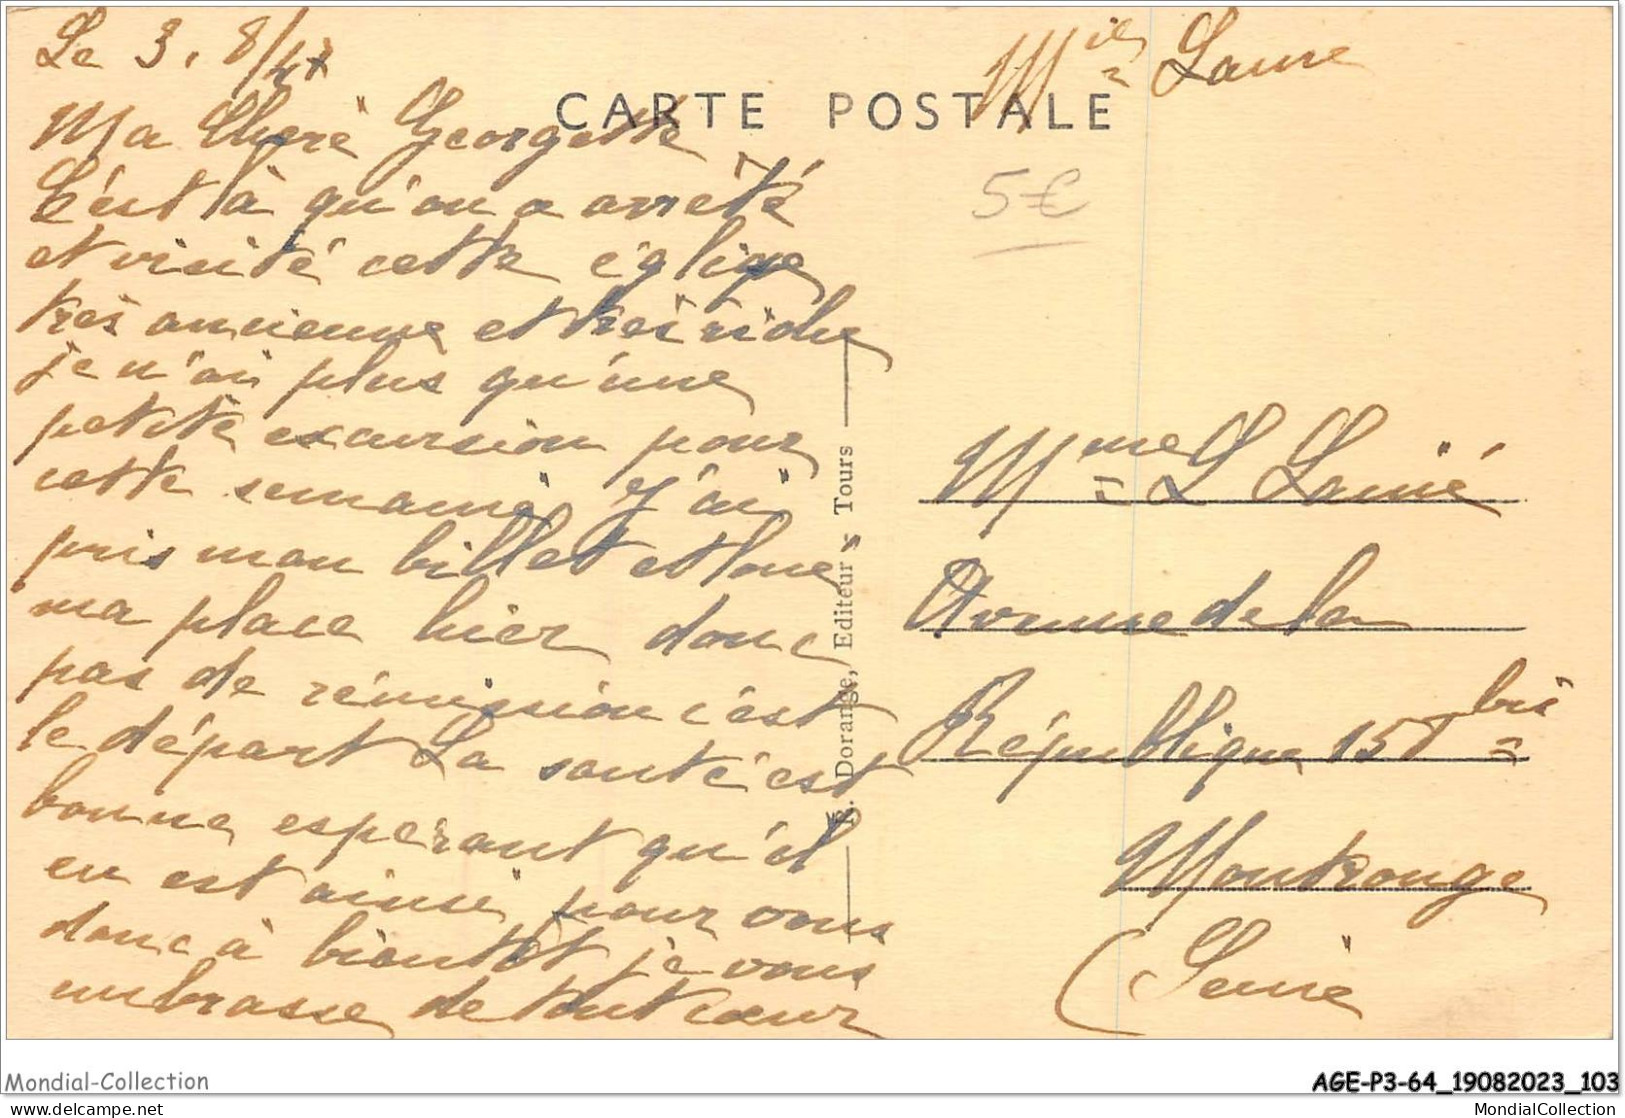 Le 3. 8/47
Ma Chère Georgette
C'est là qu'on a arrêté
et visité cette église
très ancienne et très riche
je n'ai plus qu'une
petite excursion pour
cette semaine J'ai
pris mon billet et loué
ma place hier donc
pas de rémission c'est
le départ La santé est
bonne espérant qu'il
en est ainsi pour vous
donc à bientôt je vous
embrasse de tout cœur
CARTE POSTALE
Laure
5€
R. Dorange, Editeur - Tours
Mme L Lainé
Avenue de la
République 15 bis,
Montrouge
(Seine
Mondial-Collection
AGE-P3-64_19082023_103
www.delcampe.net
MondialCollection